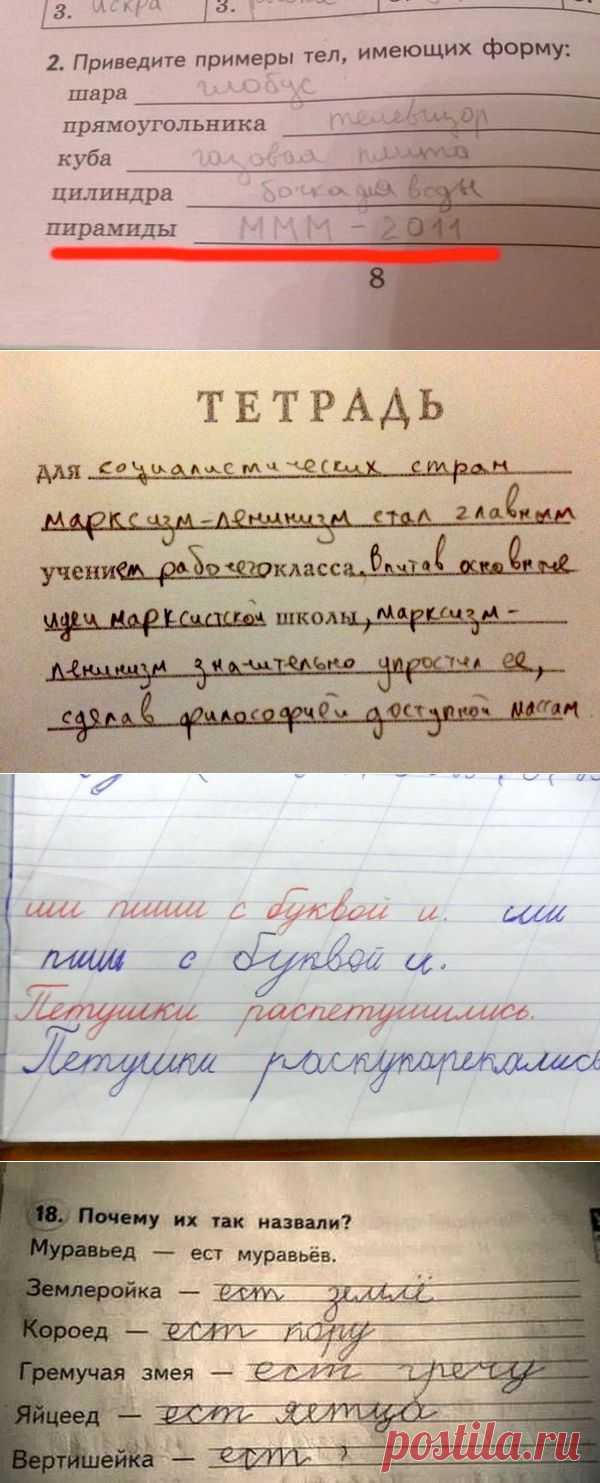 3. искра 3.
2. Приведите примеры тел, имеющих форму:
шара глобус
прямоугольника телевизор
куба газовая плита
цилиндра бочка для воды
пирамиды МММ - 2011
8
ТЕТРАДЬ
для социалистических стран
марксизм-ленинизм стал главным
учением рабочего класса. Впитав основные
идеи марксистской школы, марксизм-
ленинизм значительно упростил ее,
сделав философией доступной массам
ши пиши с буквой и. ши
пиши с буквой и.
Петушки распетушились.
Петушки раскукарекались
18. Почему их так назвали?
Муравьед — ест муравьёв.
Землеройка — ест землё
Короед — ест пору
Гремучая змея — ест гречу
Яйцеед — ест яетца
Вертишейка — ест ?
postila.ru